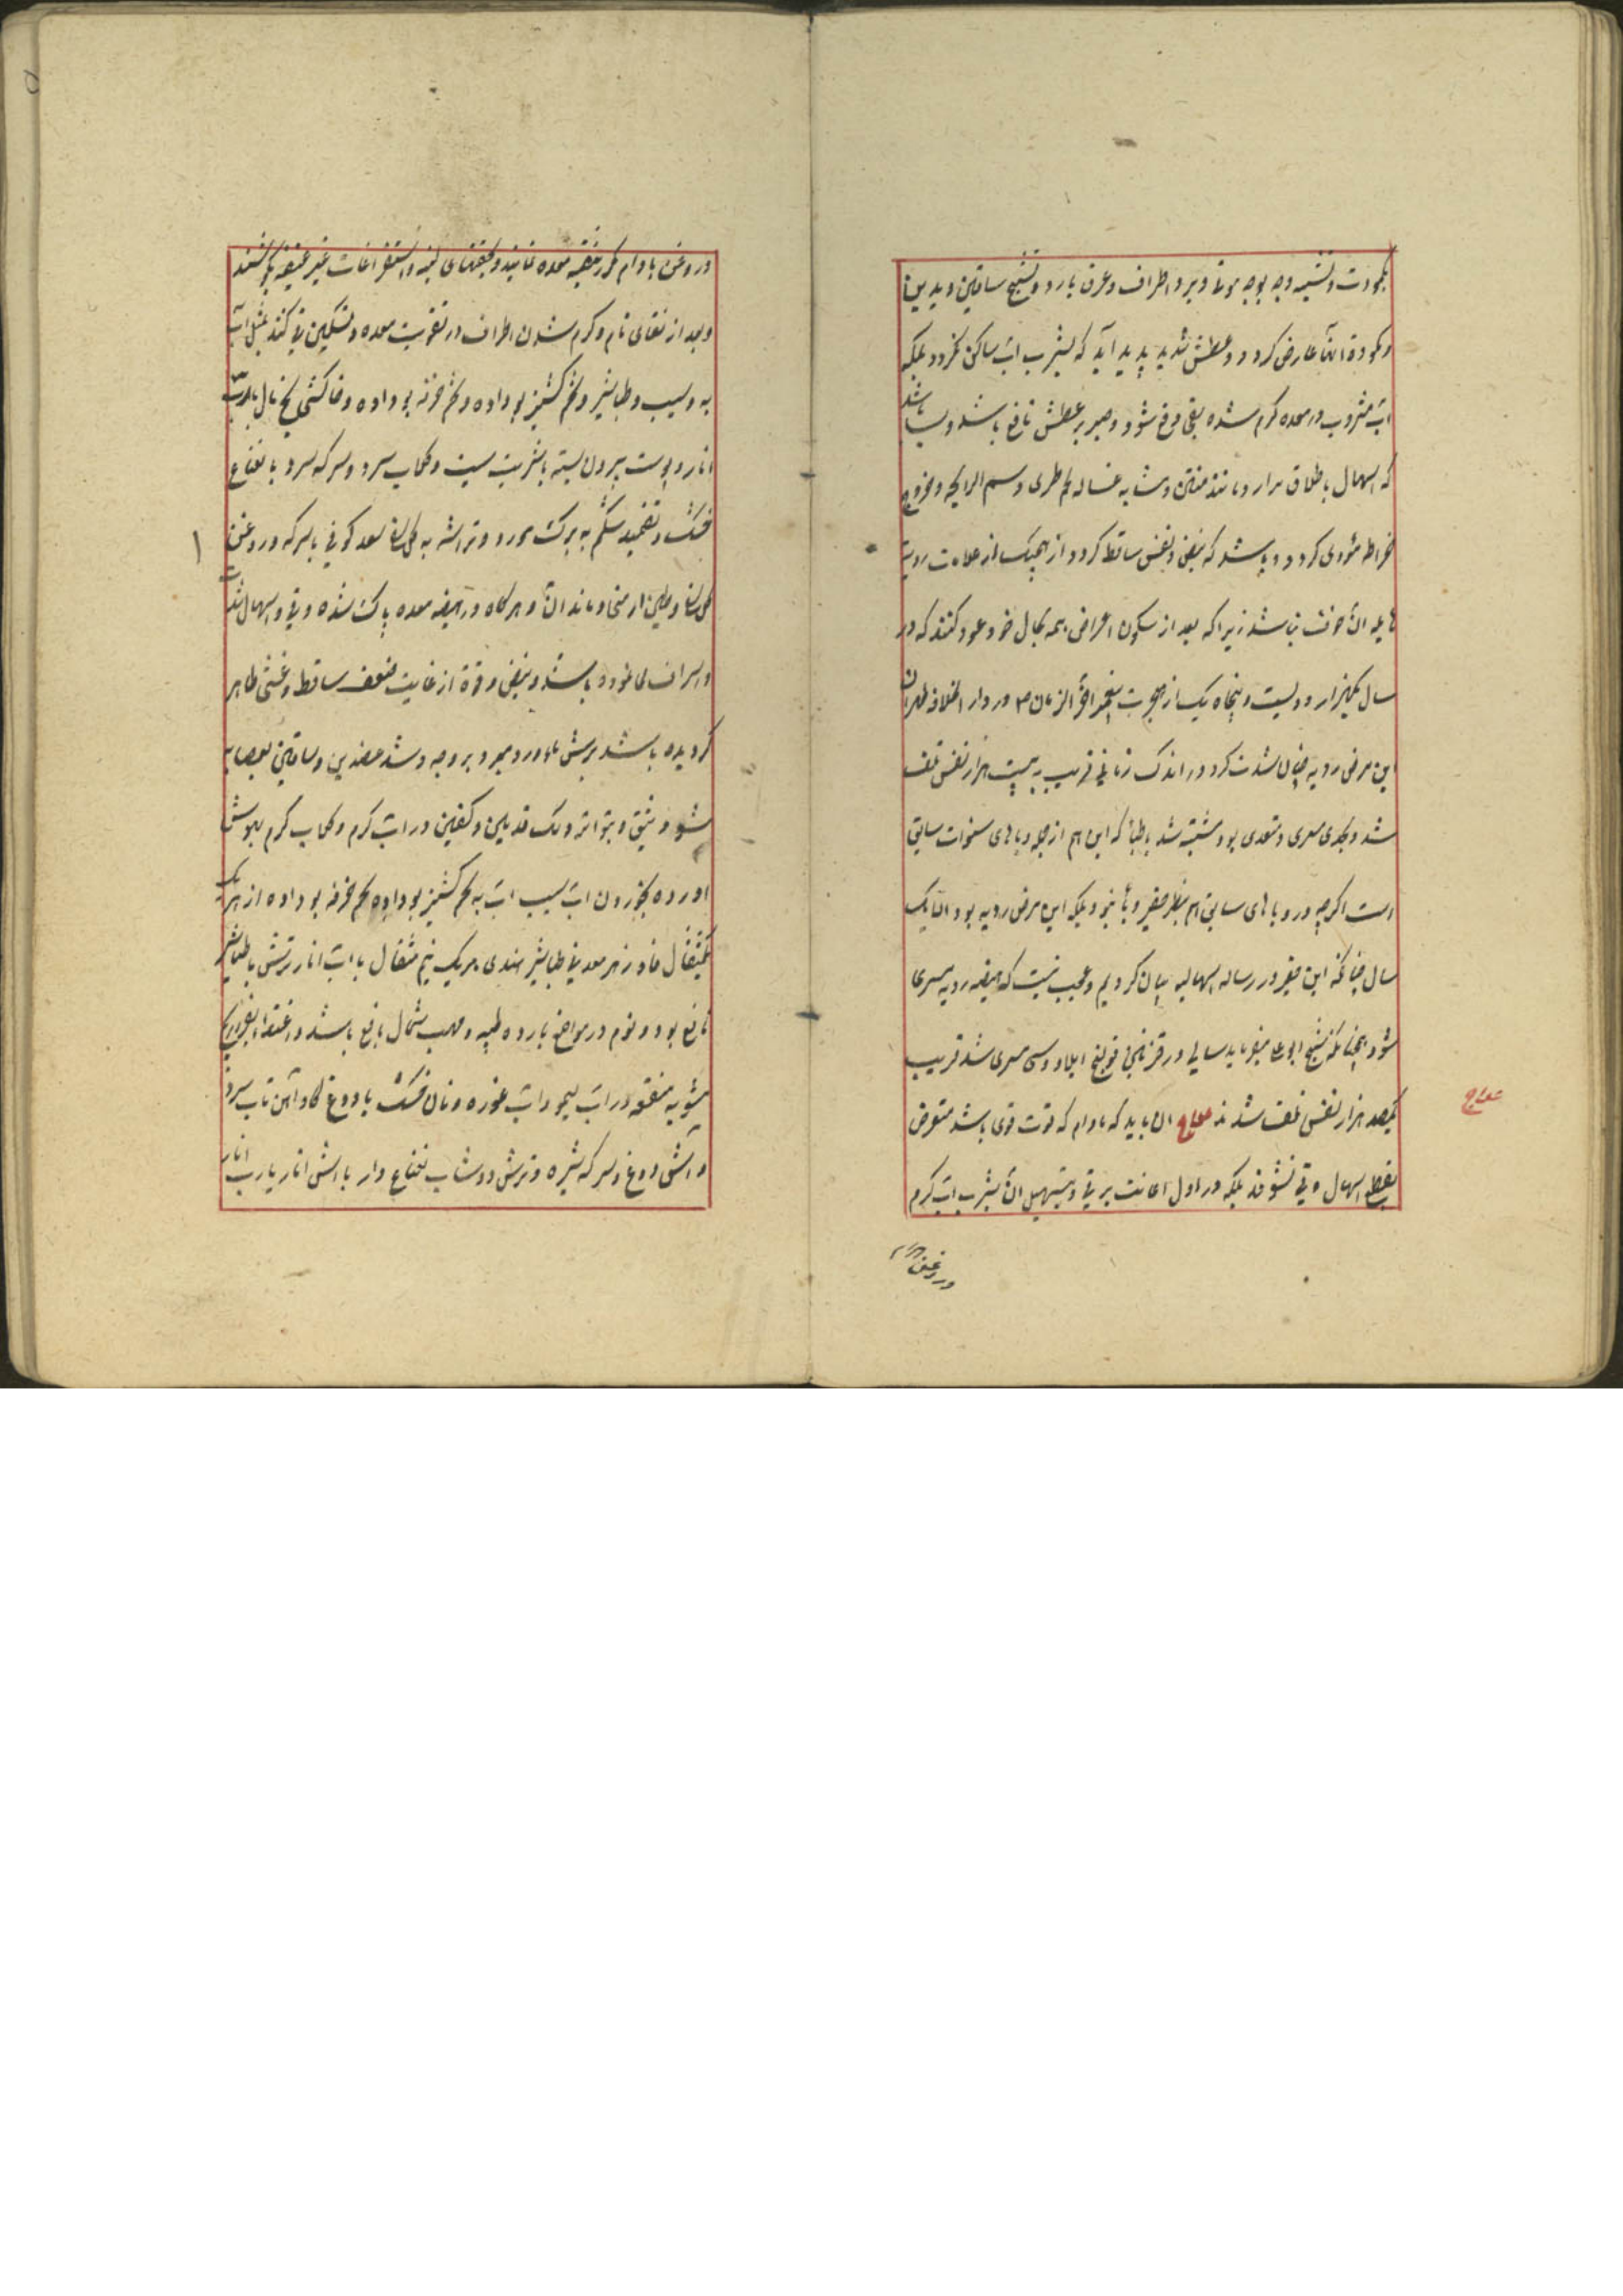 بکمودت و تشبیه وجه بوجه موتی و برد اطراف و عرق بارد و تشنج ساقین و یدین
و کمودة آنها عارض کردد و عطش شدید پدید آید که بشرب آب ساکن نکردد بلکه
آب مشروب در معده کرم شده بقی دفع شود و صبر بر عطش نافع باشد و بسا باشد
که اسهال باطلاق مرار و مانند منتن و مشابه غساله لحم طری و سهم الرایحه و بخروج
خراطه مؤدی کردد و باشد که نبض و نفس ساقط کردد از هیچیک از علامات ردیه
هایله آن خوف نباشد زیرا که بعد از سکون اعراض همه بحال خود عود کنند که در
سال یکهزار و دویست و پنجاه یک از هجرت پیغمبر آخر الزمان ص در دار الخلافه طهران
این مرض ردیه چنان شدت کرد در اندک زمانی قریب به بیست هزار نفس تلف
شد و بحدی مسری و متعدی بود مشتبه شد باطبا که این هم از جمله وباهای سنوات سابق
است اکرچه در وباهای سابق هم بنظر حقیر وبا نبود بلکه این مرض ردیه بود الا یک
سال چنانکه این حقیر در رساله اسهالیه بیان کردیم و عجب نیست که هیضه ردیه مسری
شود همچنانکه شیخ ابوعلی میفرماید سالی در قزوین قولنج ایلاوسی مسری شد قریب
یکصد هزار نفس تلف شدند علاج آن باید که مادام که قوت قوی باشد متعرض
علاج
بقطع اسهال و قی نشوند بلکه در اول اعانت بر قی و تسهیل آن بشرب آب کرم
و روغن بادام
و روغن بادام کرده تنقیه معده نمایند و بحقنهای لینه و استفراغات غیر عنیفه بکوشند
و بعد از نقای تام و کرم شدن اطراف در تقویت معده و تسکین قی کنند بمثل آب
به و سیب و طباشیر و تخم کشنیز بو داده و تخم خرفه بو داده و خاکشی یخ مال با رب
انار و پوست بیرون پسته با شربت سیب و کلاب سرد و سرکه سرد با نعناع
خشک و تضمید شکم به برک مورد و تراشه به کل سرخ سعد کوفی با سرکه و روغن
کل سرخ و طین ارمنی و مانند آن و هرکاه در هیضه معده پاک شده و قی و اسهال
و اسراف نموده باشد و نبض و قوة از غایت ضعف ساقط و غشی ظاهر
کردیده باشد برش ماء ورد مبرد بر وجه و شد عضدین و ساقین بعصابه
شود و بتواتر دلک قدمین و کفین در آب کرم و کلاب کرم بهوش
آورده بخوردن آب سیب آب به تخم کشنیز بو داده تخم خرفه بو داده از هر یک
یکمثقال فادزهر معدنی طباشیر هندی هر یک نیم مثقال با آب انار ترش با طباشیر
نافع بود و نوم در مواضع بارده طیبه و مهب شمال نافع باشد و اغتذا
مشویه منقعه در آب لیمو و آب غوره و نان خشک با دوغ کاو آهن تاب سرد
و آش دوغ و سرکه شیره و ترش و دوشاب نعناع دار با آش انار یا رب انار